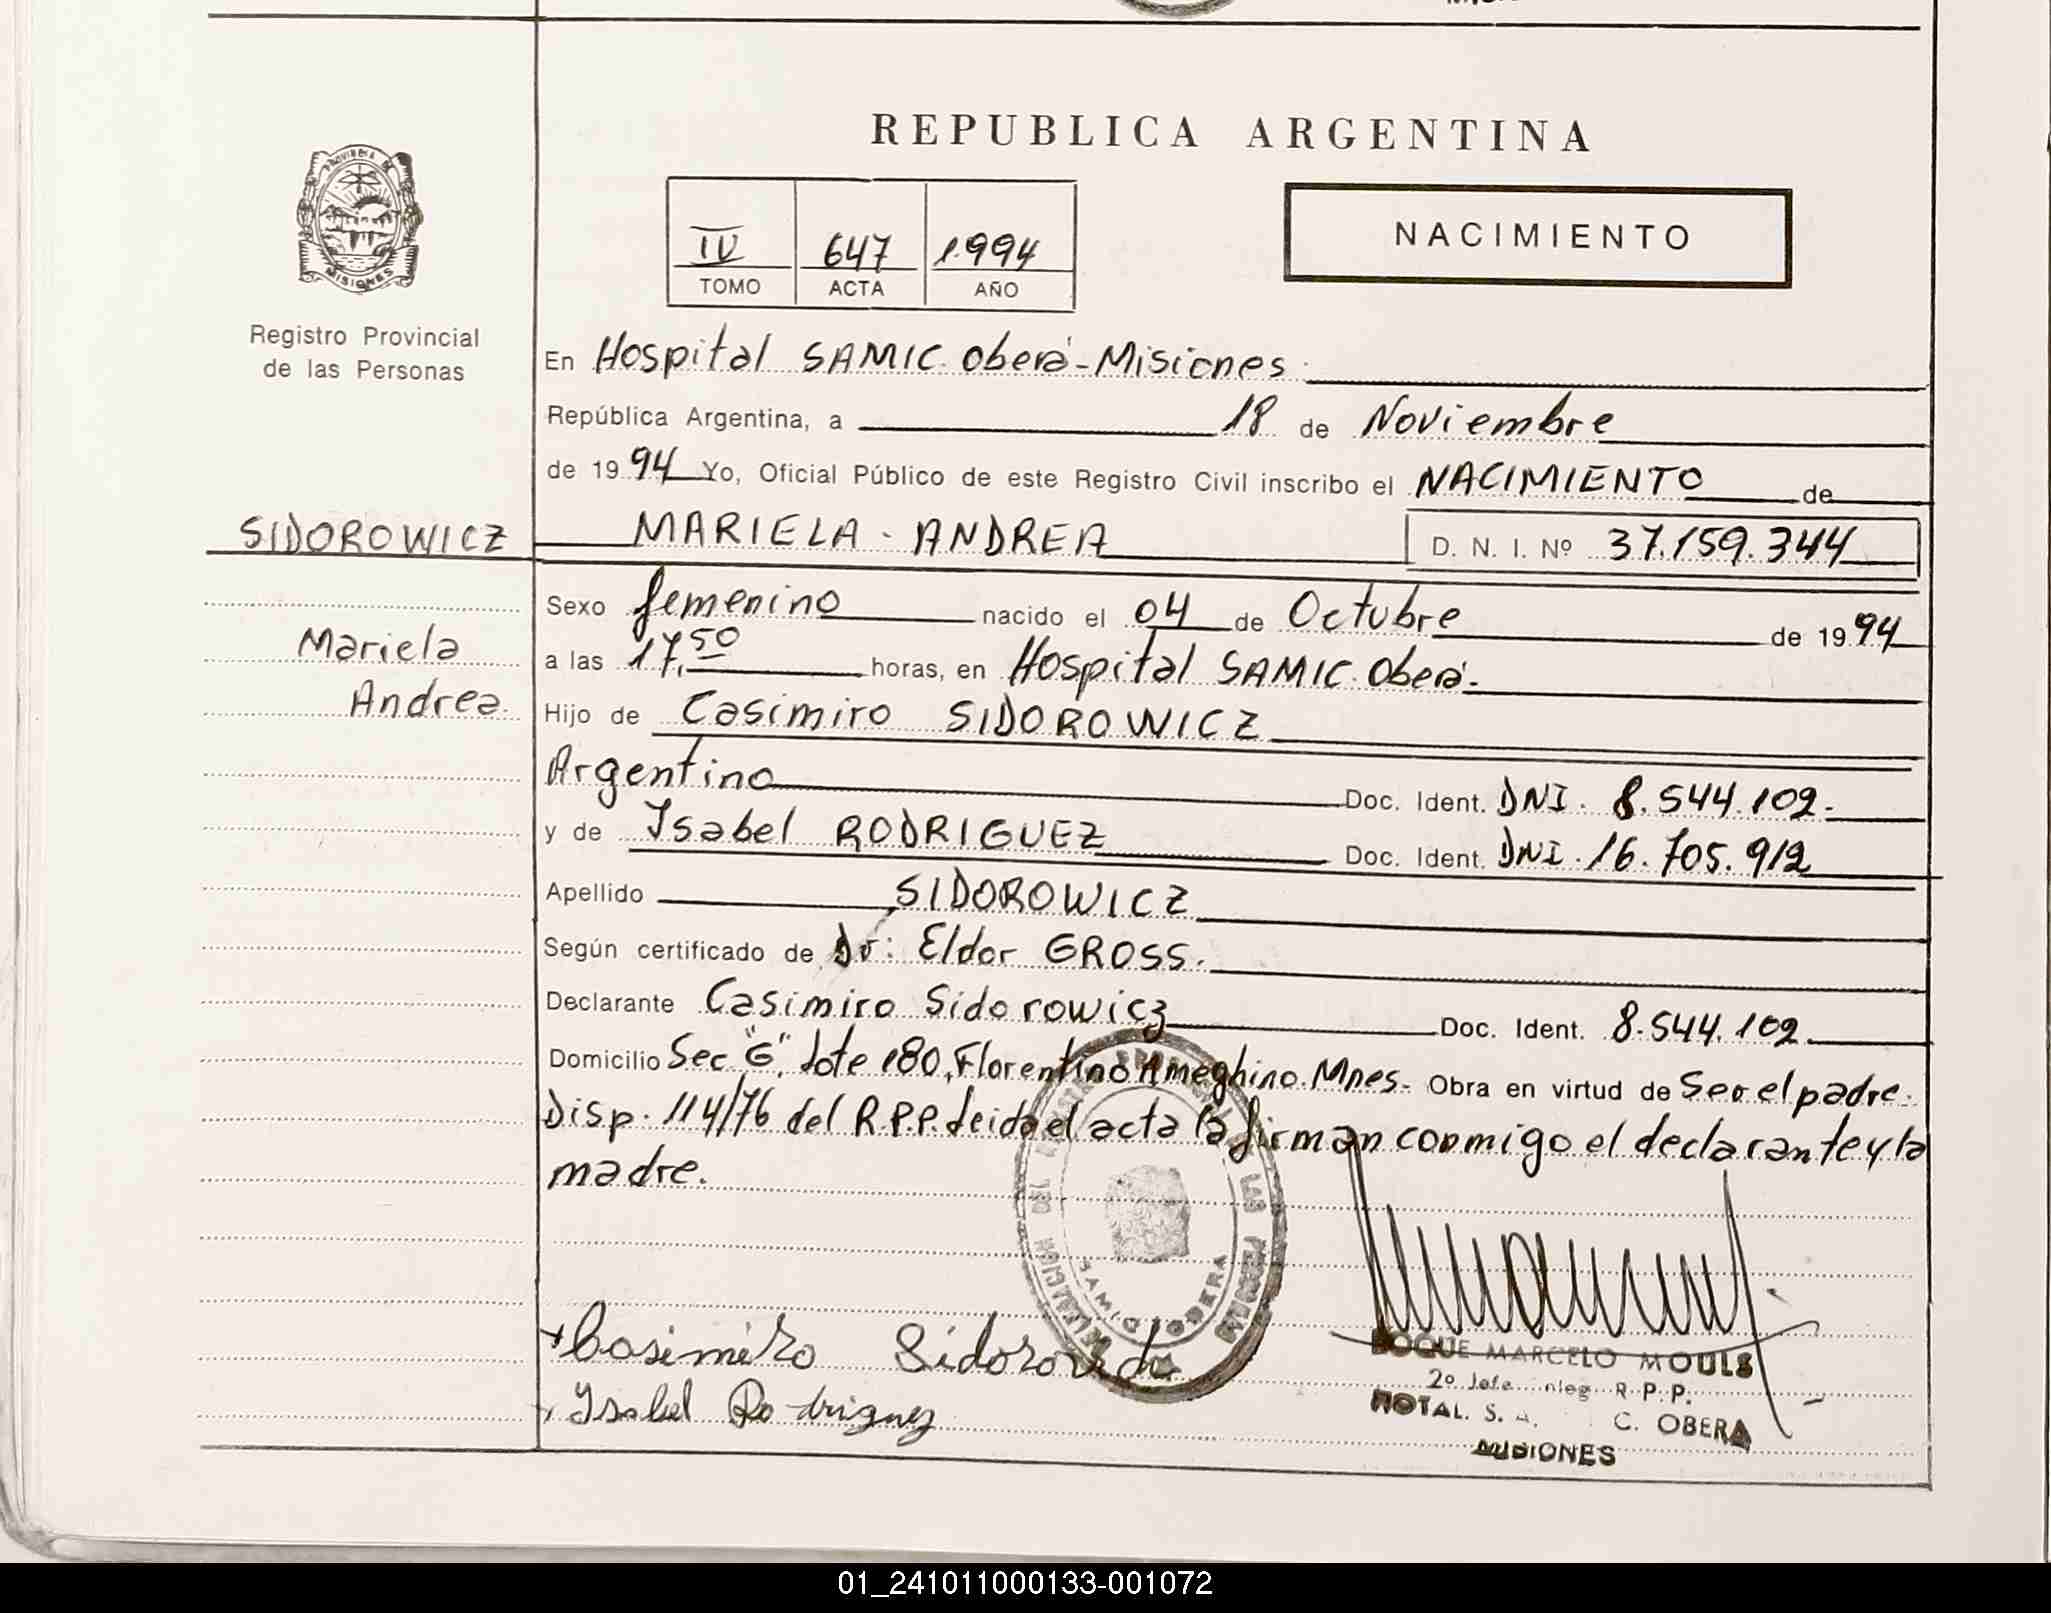 REPUBLICA ARGENTINA
PROVINCIA DE
MISIONES
IV 647 1.994
TOMO ACTA AÑO
NACIMIENTO
Registro Provincial
de las Personas
En Hospital SAMIC. Oberá-Misiones.
República Argentina, a 18 de Noviembre
de 1994 Yo, Oficial Público de este Registro Civil inscribo el NACIMIENTO de
SIDOROWICZ MARIELA - ANDREA D. N. I. Nº 37.159.344
Sexo femenino nacido el 04 de Octubre de 1994
Mariela
Andrea.
a las 17,50 horas, en Hospital SAMIC. Oberá.
Hijo de Casimiro SIDOROWICZ
Argentino Doc. Ident. DNI. 8.544.102.
y de Isabel RODRIGUEZ Doc. Ident. DNI. 16.705.912
Apellido SIDOROWICZ
Según certificado de Dr: Eldor GROSS.
Declarante Casimiro Sidorowicz Doc. Ident. 8.544.102
Domicilio Sec "G", lote 180, Florentino Ameghino. Mnes. Obra en virtud de Ser el padre.
Disp. 114/76 del R.P.P. Leida el acta la firman conmigo el declarante y la
madre.
DELEGACION DEL REGISTRO LAS PERSONAS
SAMIC OBERA
Casimiro
Isabel Rodriguez
ROQUE MARCELO MOULS
2º Jefe R. P. P.
HOTAL. S. A. C. OBERA
MISIONES
01_241011000133-001072